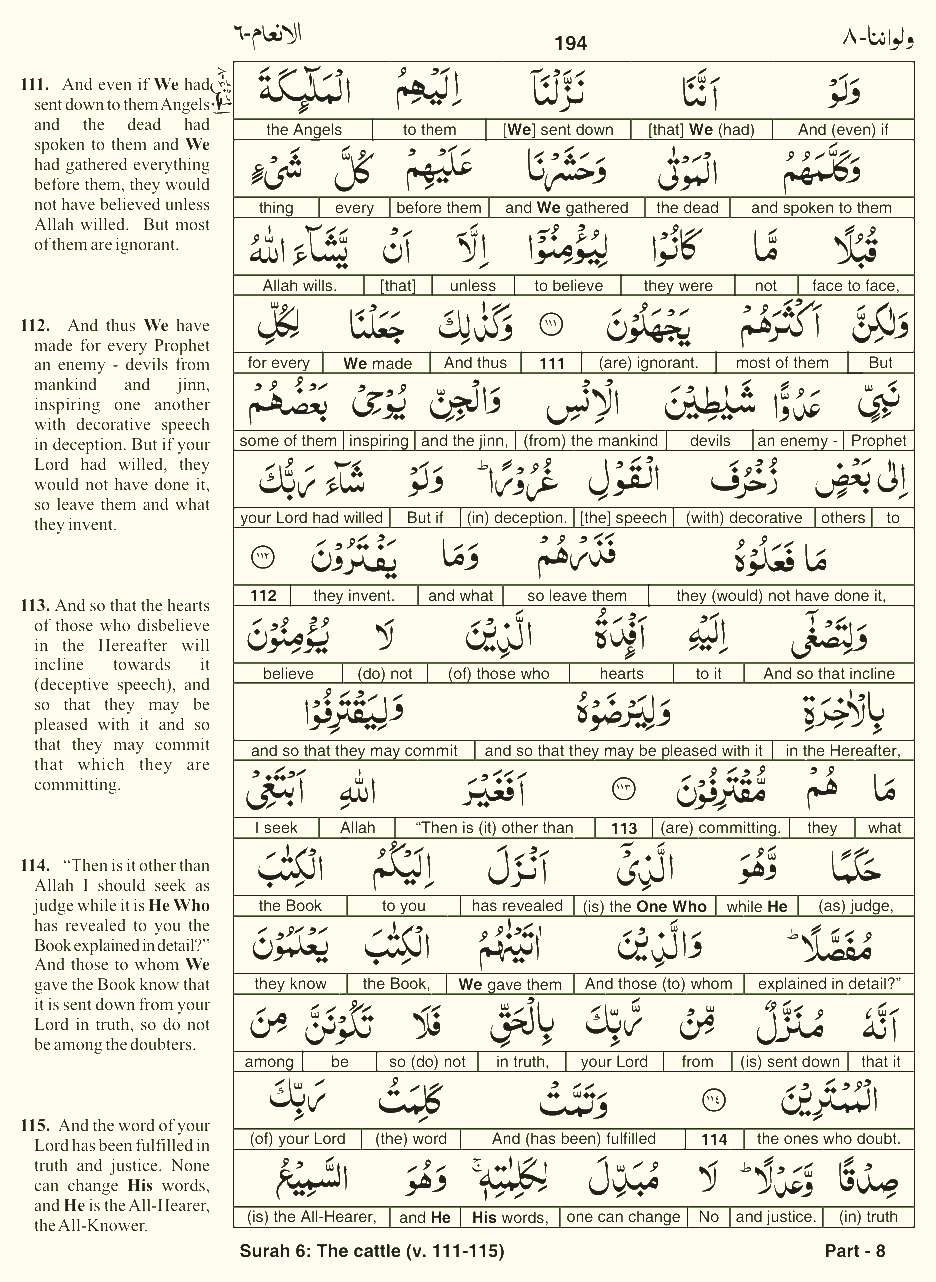 الانعام-٦ 194 ولواننا-٨
111. And even if We had
sent down to them Angels
and the dead had
spoken to them and We
had gathered everything
before them, they would
not have believed unless
Allah willed. But most
of them are ignorant.
112. And thus We have
made for every Prophet
an enemy - devils from
mankind and jinn,
inspiring one another
with decorative speech
in deception. But if your
Lord had willed, they
would not have done it,
so leave them and what
they invent.
113. And so that the hearts
of those who disbelieve
in the Hereafter will
incline towards it
(deceptive speech), and
so that they may be
pleased with it and so
that they may commit
that which they are
committing.
114. “Then is it other than
Allah I should seek as
judge while it is He Who
has revealed to you the
Book explained in detail?”
And those to whom We
gave the Book know that
it is sent down from your
Lord in truth, so do not
be among the doubters.
115. And the word of your
Lord has been fulfilled in
truth and justice. None
can change His words,
and He is the All-Hearer,
the All-Knower.
وَلَوْ اَنَّنَا نَزَّلْنَآ اِلَيْهِمُ الْمَلٰٓئِكَةَ
the Angels to them [We] sent down [that] We (had) And (even) if
وَكَلَّمَهُمُ الْمَوْتٰى وَحَشَرْنَا عَلَيْهِمْ كُلَّ شَيْءٍ
thing every before them and We gathered the dead and spoken to them
قُبُلًا مَّا كَانُوْا لِيُؤْمِنُوْٓا اِلَّآ اَنْ يَّشَآءَ اللّٰهُ
Allah wills. [that] unless to believe they were not face to face,
وَلٰكِنَّ اَكْثَرَهُمْ يَجْهَلُوْنَ ١١١ وَكَذٰلِكَ جَعَلْنَا لِكُلِّ
for every We made And thus 111 (are) ignorant. most of them But
نَبِيٍّ عَدُوًّا شَيٰطِيْنَ الْاِنْسِ وَالْجِنِّ يُوْحِيْ بَعْضُهُمْ
some of them inspiring and the jinn, (from) the mankind devils an enemy - Prophet
اِلٰى بَعْضٍ زُخْرُفَ الْقَوْلِ غُرُوْرًا ؕ وَلَوْ شَآءَ رَبُّكَ
your Lord had willed But if (in) deception. [the] speech (with) decorative others to
مَا فَعَلُوْهُ فَذَرْهُمْ وَمَا يَفْتَرُوْنَ ١١٢
112 they invent. and what so leave them they (would) not have done it,
وَلِتَصْغٰٓى اِلَيْهِ اَفْـِٕدَةُ الَّذِيْنَ لَا يُؤْمِنُوْنَ
believe (do) not (of) those who hearts to it And so that incline
بِالْاٰخِرَةِ وَلِيَرْضَوْهُ وَلِيَقْتَرِفُوْا
and so that they may commit and so that they may be pleased with it in the Hereafter,
مَا هُمْ مُّقْتَرِفُوْنَ ١١٣ اَفَغَيْرَ اللّٰهِ اَبْتَغِيْ
I seek Allah “Then is (it) other than 113 (are) committing. they what
حَكَمًا وَّهُوَ الَّذِيْٓ اَنْزَلَ اِلَيْكُمُ الْكِتٰبَ
the Book to you has revealed (is) the One Who while He (as) judge,
مُفَصَّلًا ؕ وَالَّذِيْنَ اٰتَيْنٰهُمُ الْكِتٰبَ يَعْلَمُوْنَ
they know the Book, We gave them And those (to) whom explained in detail?”
اَنَّهٗ مُنَزَّلٌ مِّنْ رَّبِّكَ بِالْحَقِّ فَلَا تَكُوْنَنَّ مِنَ
among be so (do) not in truth, your Lord from (is) sent down that it
الْمُمْتَرِيْنَ ١١٤ وَتَمَّتْ كَلِمَتُ رَبِّكَ
(of) your Lord (the) word And (has been) fulfilled 114 the ones who doubt.
صِدْقًا وَّعَدْلًا ؕ لَا مُبَدِّلَ لِكَلِمٰتِهٖ ۚ وَهُوَ السَّمِيْعُ
(is) the All-Hearer, and He His words, one can change No and justice. (in) truth
Surah 6: The cattle (v. 111-115) Part - 8